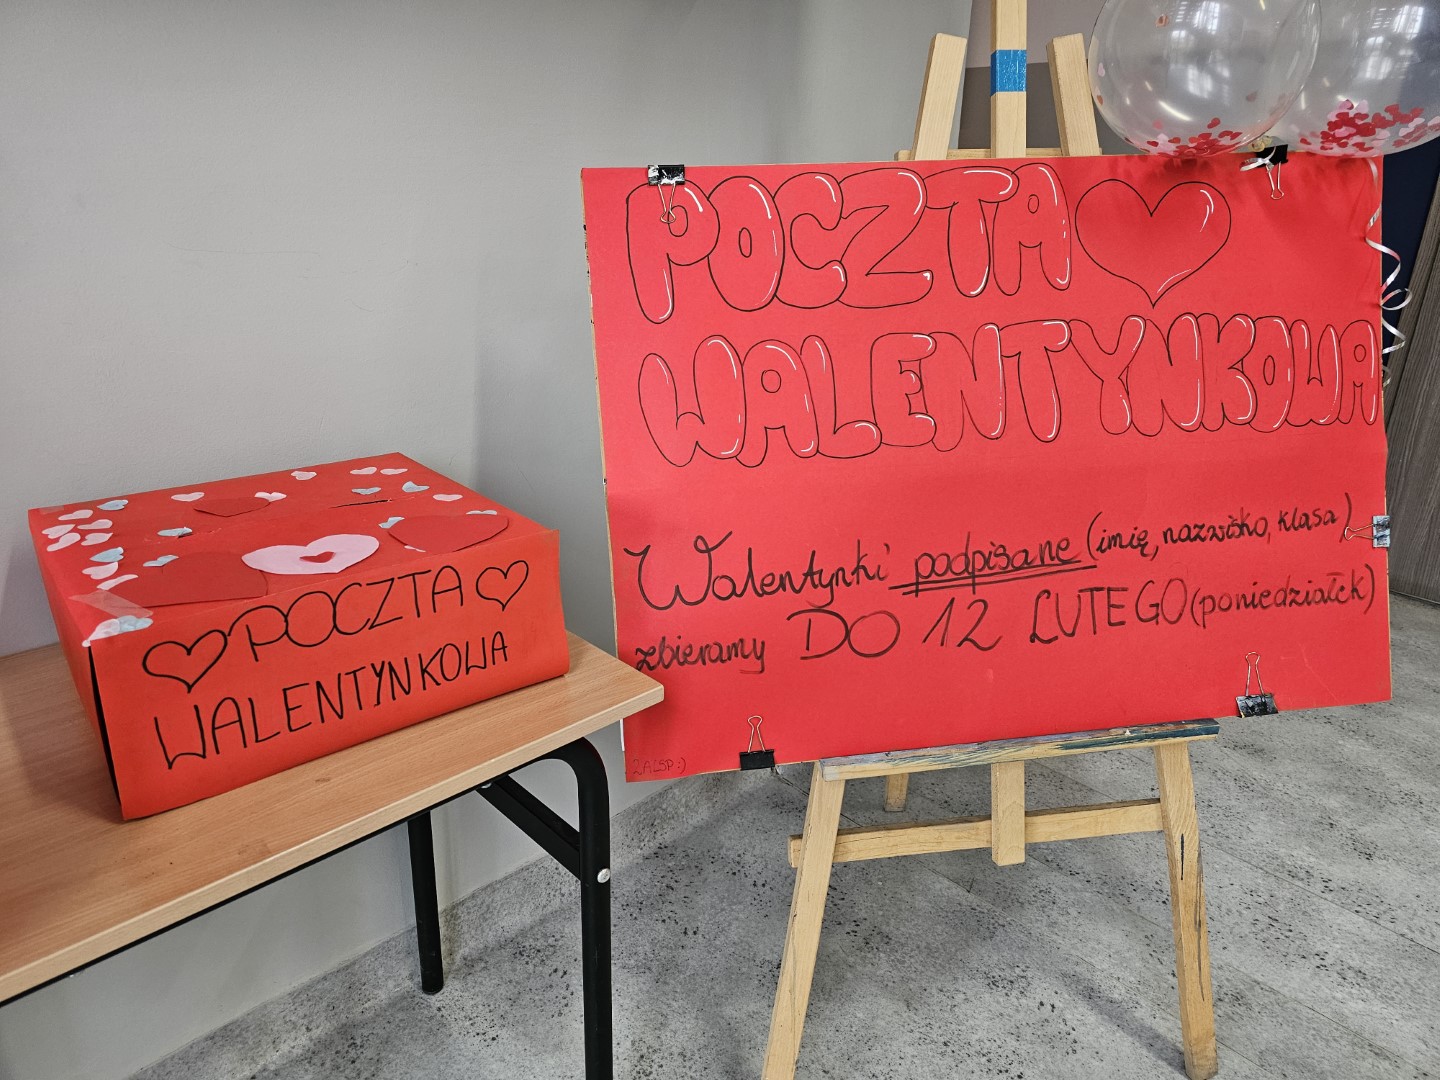 POCZTA
WALENTYNKOWA
Walentynki podpisane (imię, nazwisko, klasa)
zbieramy DO 12 LUTEGO (poniedziałek)
2ALSP:)
POCZTA
WALENTYNKOWA